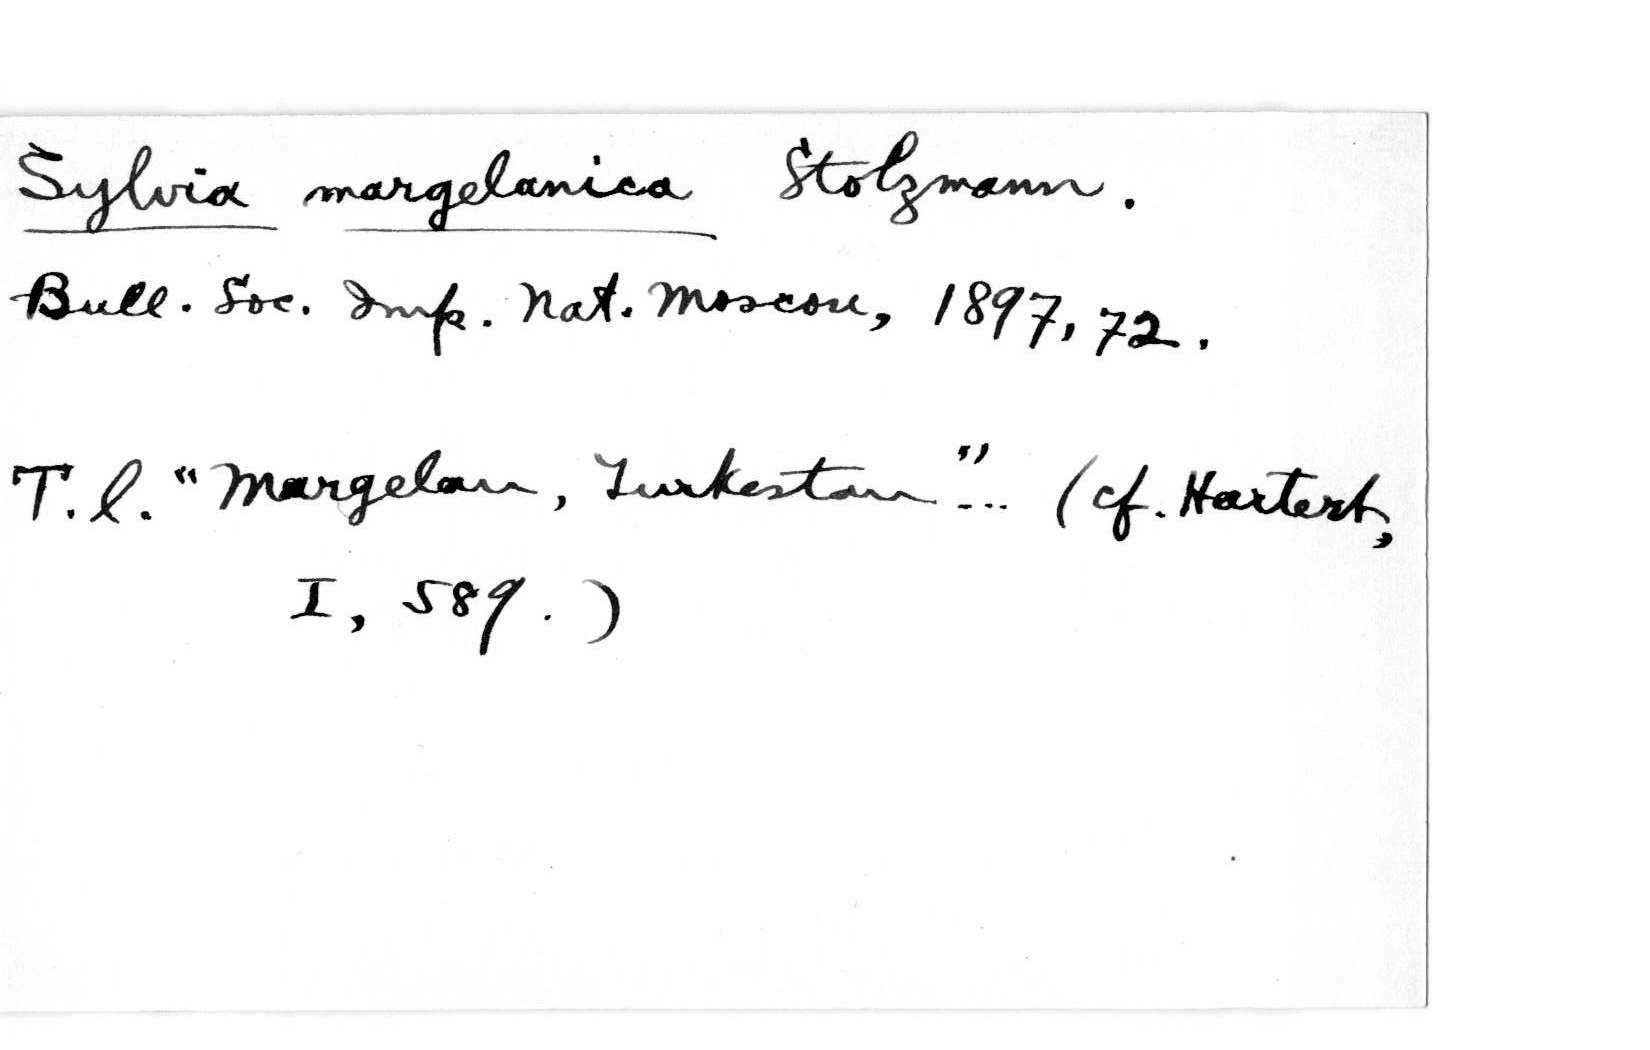 Sylvia margelanica Stolzmann.
Bull. Soc. Imp. Nat. Moscou, 1897, 72.
T. l. "Margelan, Turkestan"... (cf. Hartert,
I, 589.)